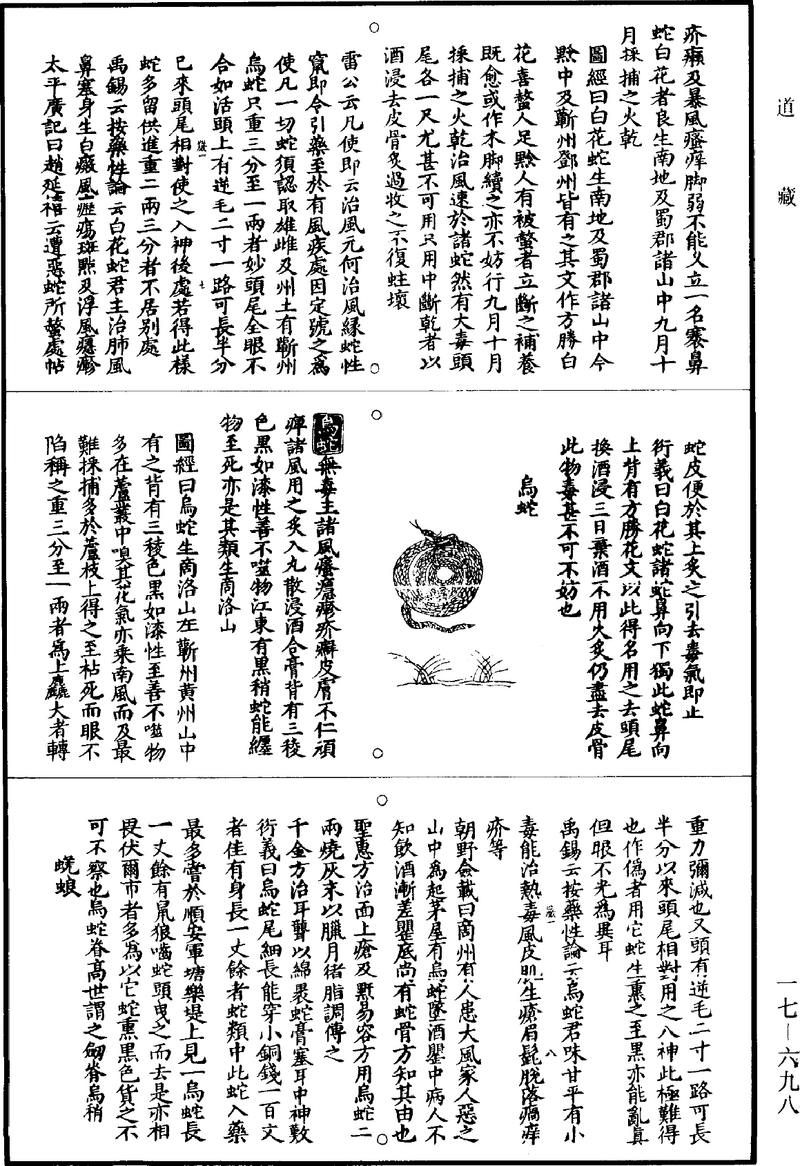 道藏
疥癩及暴風瘙痒脚弱不能久立一名褰鼻
蛇白花者良生南地及蜀郡諸山中九月十
月採捕之火乾
圖經曰白花蛇生南地及蜀郡諸山中今
黔中及蘄州鄧州皆有之其文作方勝白
花喜螫人足黔人有被螫者立斷之補養
既愈或作木脚續之亦不妨行九月十月
採捕之火乾治風速於諸蛇然有大毒頭
尾各一尺尤甚不可用只用中斷乾者以
酒浸去皮骨炙過收之不復蛀壞
雷公云凡使即云治風元何治風緣蛇性
竄即令引藥至於有風疾處因定號之為
使凡一切蛇須認取雄雌及州土有蘄州
烏蛇只重三分至一兩者妙頭尾全眼不
合如活頭上有逆毛二寸一路可長半分
已來頭尾相對使之入神後處若得此樣
蛇多留供進重二兩三分者不居別處
禹錫云按藥性論云白花蛇君主治肺風
鼻塞身生白癜風癧瘍斑點及浮風癮疹
太平廣記曰趙延禧云遭惡蛇所螫處帖
蛇皮便於其上炙之引去毒氣即止
衍義曰白花蛇諸蛇鼻向下獨此蛇鼻向
上背有方勝花文以此得名用之去頭尾
換酒浸三日棄酒不用火炙仍盡去皮骨
此物毒甚不可不妨也
烏蛇
烏蛇無毒主諸風瘙癮瘮疥癬皮膚不仁頑
痺諸風用之炙入丸散浸酒合膏背有三稜
色黑如漆性善不噬物江東有黑稍蛇能纏
物至死亦是其類生商洛山
圖經曰烏蛇生商洛山在蘄州黃州山中
有之背有三稜色黑如漆性至善不噬物
多在蘆叢中嗅其花氣亦乘南風而及最
難採捕多於蘆枝上得之至枯死而眼不
陷稱之重三分至一兩者為上麤大者轉
重力彌減也又頭有逆毛二寸一路可長
半分以來頭尾相對用之入神此極難得
也作偽者用它蛇生熏之至黑亦能亂真
但眼不光為異耳
禹錫云按藥性論云烏蛇君味甘平有小
毒能治熱毒風皮肌生瘡眉髭脫落癘痒
疥等
朝野僉載曰商州有人患大風家人惡之
山中為起茅屋有烏蛇墜酒甖中病人不
知飲酒漸差甖底尚有蛇骨方知其由也
聖惠方治面上瘡及䵟易容方用烏蛇二
兩燒灰末以臘月猪脂調傅之
千金方治耳聾以綿裹蛇膏塞耳中神敷
衍義曰烏蛇尾細長能穿小銅錢一百文
者佳有身長一丈餘者蛇類中此蛇入藥
最多嘗於順安軍塘濼堤上見一烏蛇長
一丈餘有鼠狼嚙蛇頭曳之而去是亦相
畏伏爾市者多為以它蛇熏黑色貨之不
可不察也烏蛇脊高世謂之劒脊烏稍
蜣蜋
一七—六九八